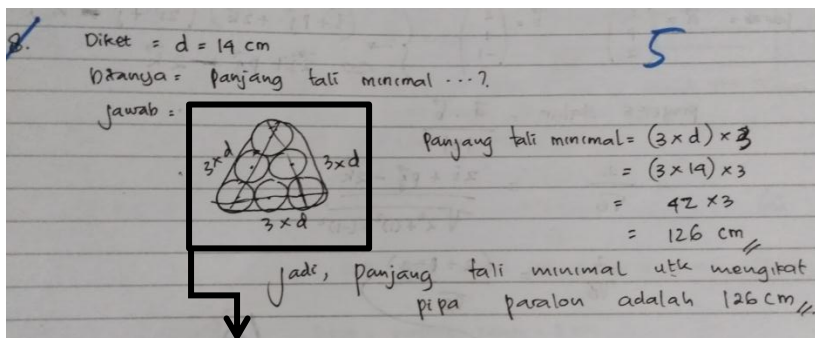 8. Diket = d = 14 cm
5
Ditanya = Panjang tali minimal ...?
Jawab =
3 x d
3 x d
3 x d
Panjang tali minimal = (3 x d) x 3
= (3 x 14) x 3
= 42 x 3
= 126 cm
Jadi, panjang tali minimal utk mengikat
pipa paralon adalah 126 cm